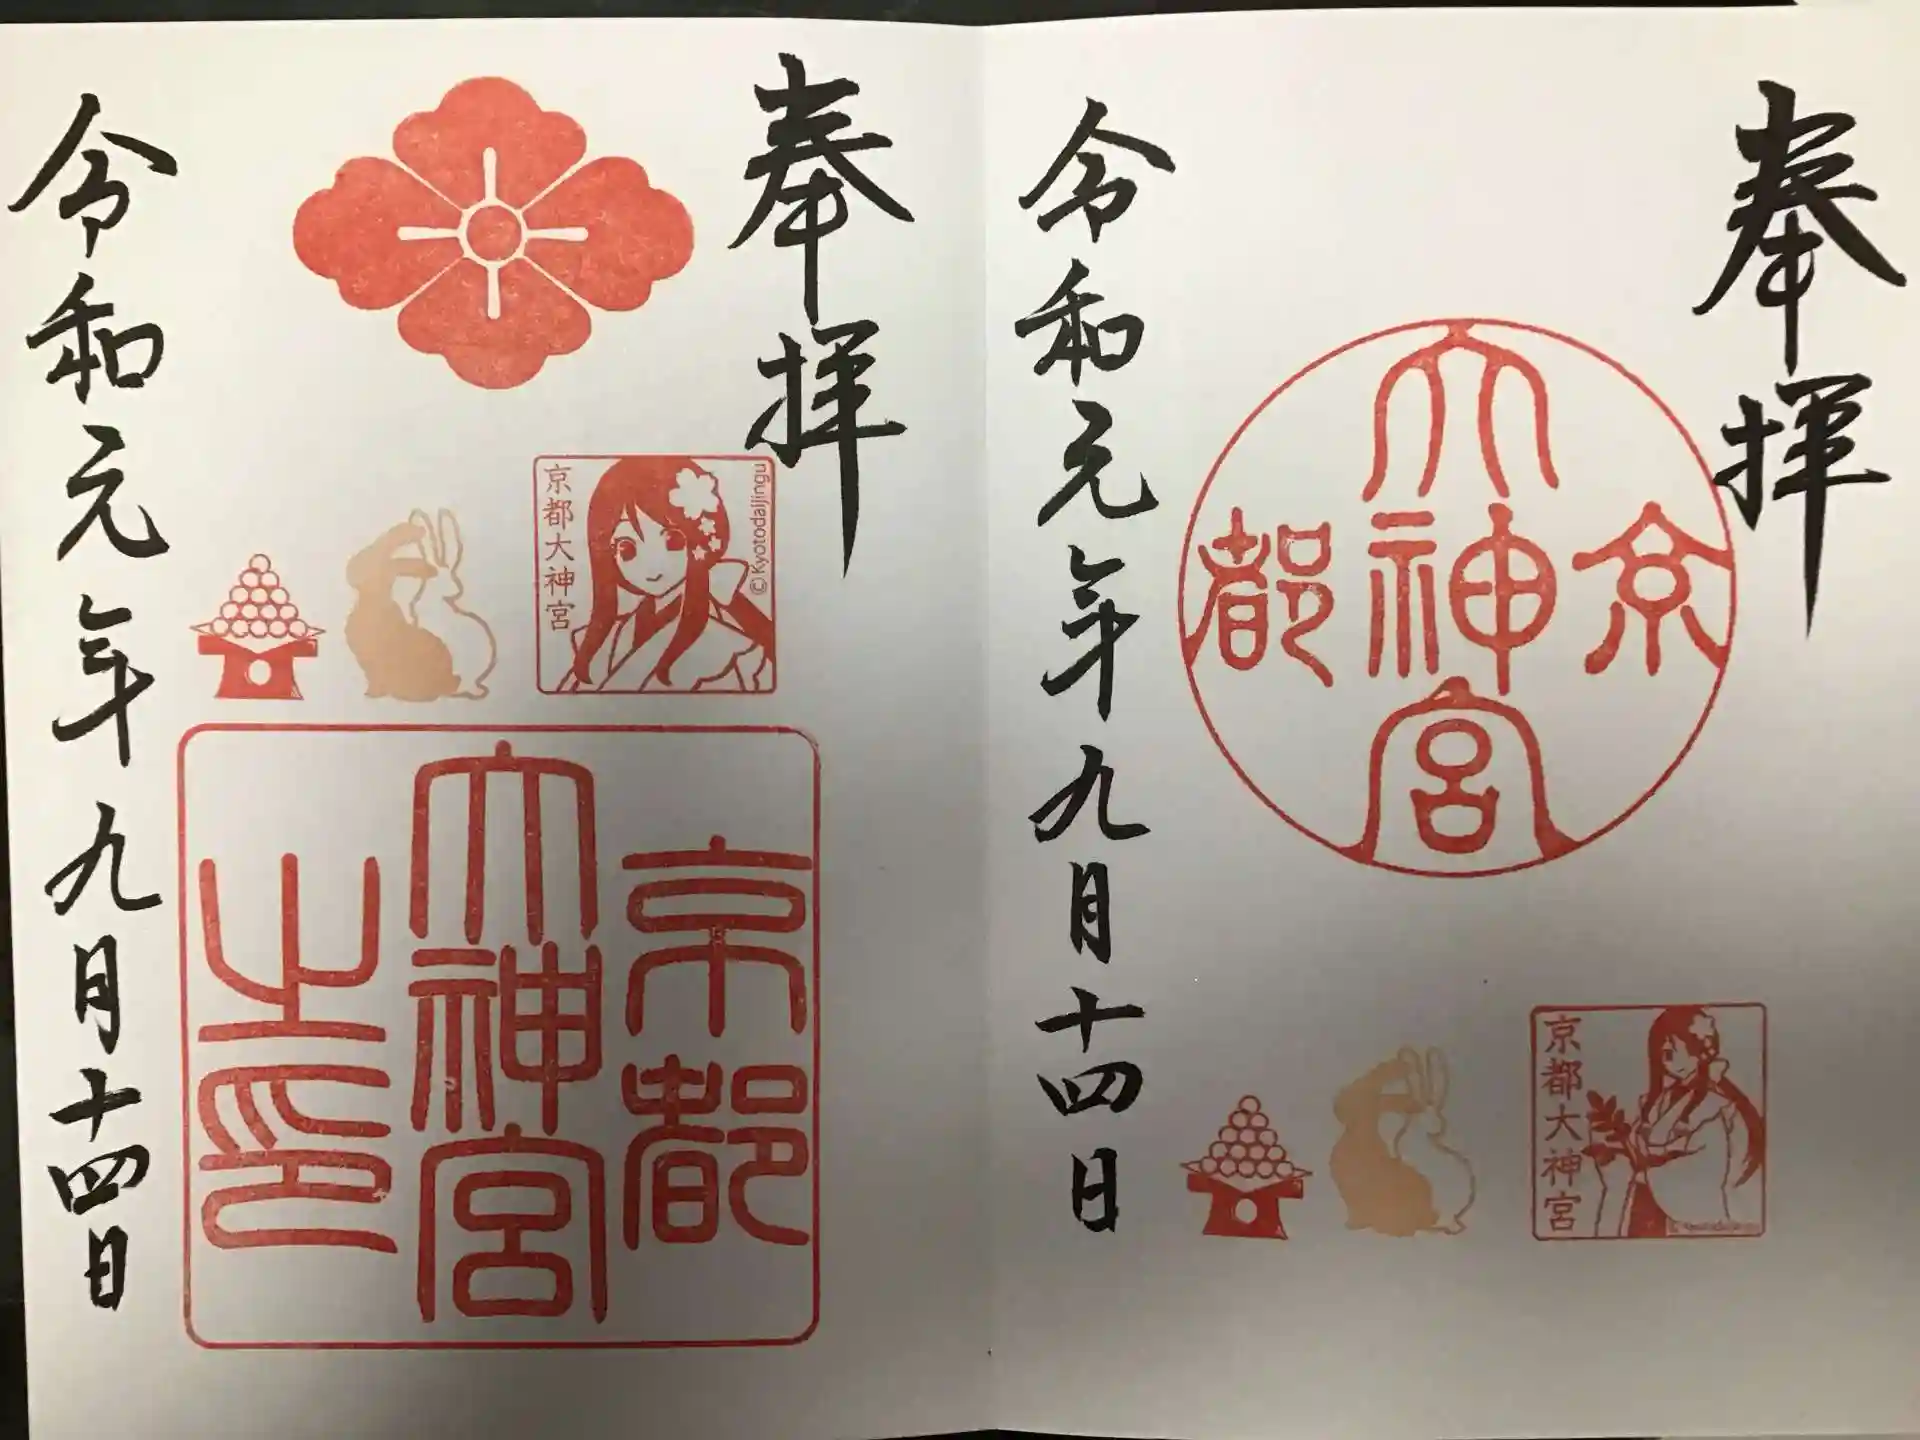 奉拝
京都
大神宮
京都大神宮
© Kyotodaijingu
令和元年九月十四日
奉拝
© Kyotodaijingu
京都大神宮
京都
大神宮
之印
令和元年九月十四日